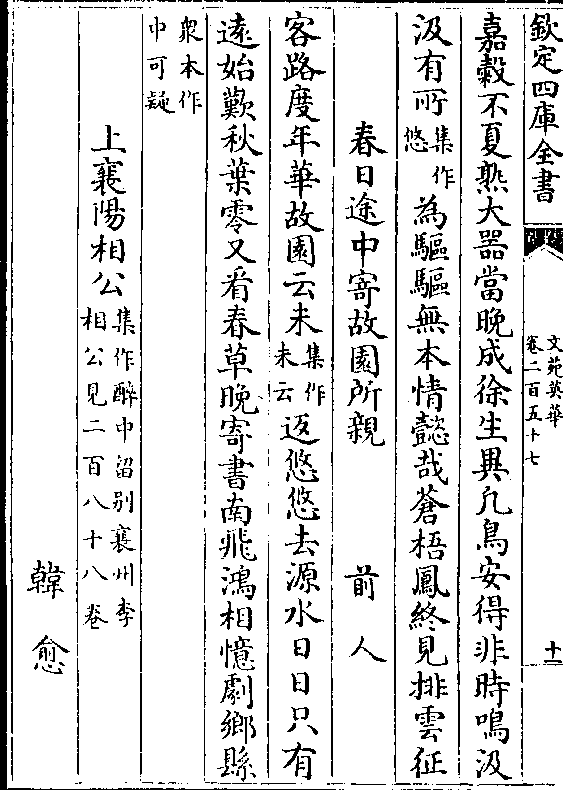 欽定四庫全書
文苑英華
卷二百五十七
十一
嘉穀不夏熟大器當晚成徐生異凡鳥安得非時鳴汲
汲有所集作悠為驅驅無本情懿哉蒼梧鳳終見排雲征
春日途中寄故園所親 前人
客路度年華故園云未集作未云返悠悠去源水日日只有
遠始歎秋葉零又看春草晚寄書南飛鴻相憶劇鄉縣
衆本作中可疑
上襄陽相公集作醉中留别襄州李相公見二百八十八卷
韓愈